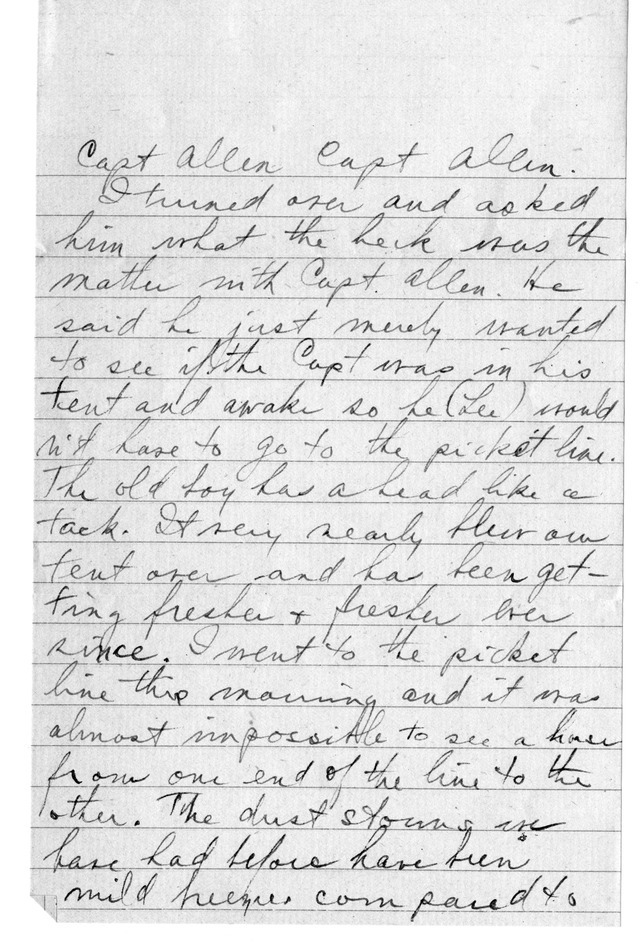 Capt Allen Capt Allen.
I turned over and asked
him what the heck was the
matter with Capt. Allen. He
said he just merely wanted
to see if the Capt was in his
tent and awake so he (Lee) would
n't have to go to the picket line.
The old boy has a head like a
tack. It very nearly blew our
tent over and has been get-
ting fresher & fresher ever
since. I went to the picket
line this morning and it was
almost impossible to see a horse
from one end of the line to the
other. The dust storms we
have had before have been
mild breezes compared to